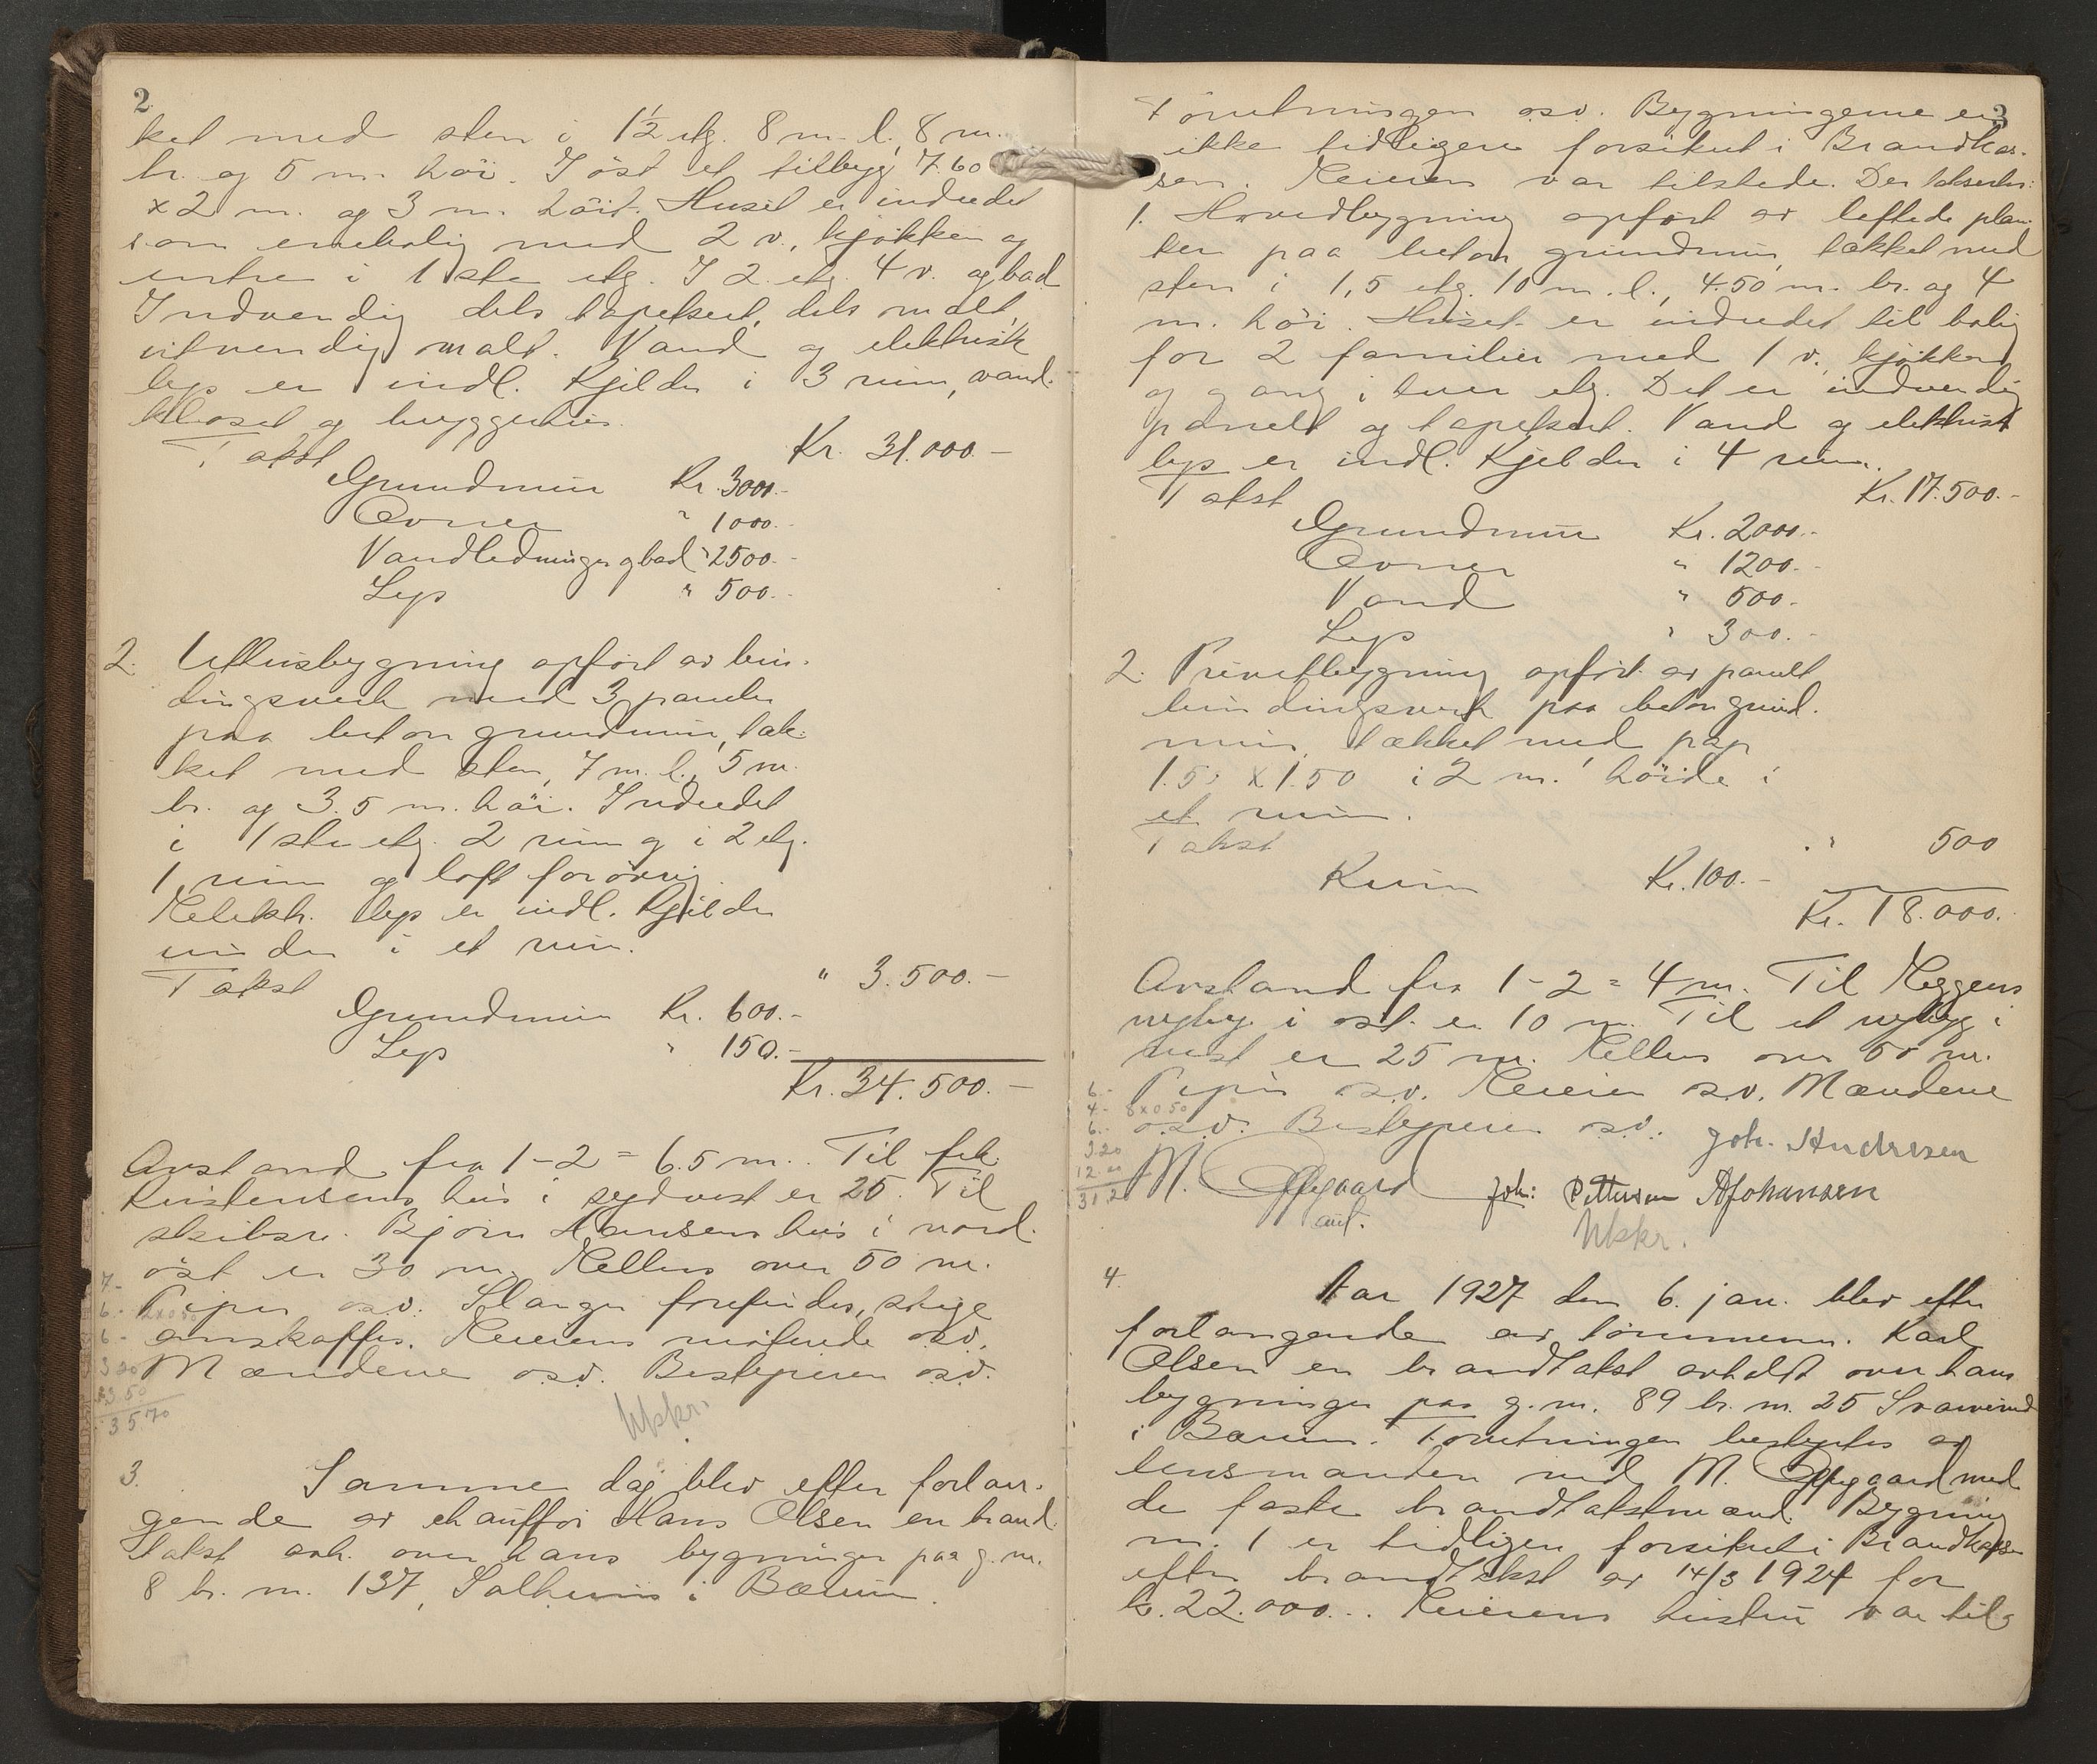 2
ket med sten i 1½ etg. 8 m. l., 8 m.
br. og 5 m. höi. I öst et tilbygg 7.60
x 2 m. og 3 m. höit. Huset er indredet
som enebolig med 2 v., kjökken og
entre i 1ste etg. I 2. etg. 4 v. og bad
Indvendig dels tapetsert, dels malt,
utvendig malt. Vand og elektrisk
lys er indl. Kjelder i 3 rum, vand-
kloset og bryggerhus.
Takst Kr. 31.000.-
Grundmur Kr. 3000.-
Ovner " 1000.-
Vandledninger og bad " 2500.-
Lys " 500.-
2. Uthusbygning opført av bin-
dingsverk med 3 paneler
paa beton grundmur, tæk-
ket med sten, 7 m. l., 5 m.
br. og 3.5 m. höi. Indredet
i 1ste etg. 2 rum og i 2 etg.
1 rum og loft forövrig
Elektr. lys er indl. Kjelder
under i et rum.
Takst " 3.500.-
Grundmur Kr. 600.-
Lys " 150.-
Kr. 34.500.-
Avstand fra 1-2 = 6.5 m. Til frk.
Kristensens hus i sydvest er 25. Til
skibsr. Bjørn Hansens hus i nord-
öst er 30 m. Ellers over 50 m.
Piper o.s.v. Slanger forefindes, stige
anskaffes. Eieren møtende o.s.v.
Mændene o.s.v. Bestyreren o.s.v.
7.-
6.-
6.-
3 20
13.50
35 70
Utskr.
3. Samme dag blev efter forlan-
gende av chauffør Hans Olsen en brand-
takst avh. over hans bygninger paa g. nr.
8 br. nr. 137, Solheim i Bærum.
3
Forretningen o.s.v. Bygningerne er
ikke tidligere forsikret i Brandkas-
sen. Eieren var tilstede. Der takseres:
1. Hovedbygning opført av laftede plan-
ker paa beton grundmur, tækket med
sten i 1,5 etg. 10 m. l., 4.50 m. br. og 4
m. höi. Huset er indredet til bolig
for 2 familier med 1 v., kjøkken
og gang i hver etg. Det er indvendig
panelt og tapetsert. Vand og elektrisk
lys er indl. Kjelder i 4 rum.
Takst Kr. 17.500.-
Grundmur Kr. 2000.-
Ovner " 1200.-
Vand " 500.-
Lys " 300.-
2. Privetbygning opført av panelt
bindingsverk paa beton grund-
mur, tækket med pap
1.50 x 1.50 i 2 m. höide i
et rum.
Takst " 500
Kum Kr. 100.-
Kr. 18.000.-
Avstand fra 1-2 = 4 m. Til Eggens
nybyg i öst er 10 m. Til et nybygg i
vest er 25 m. Ellers over 50 m.
Piper o.s.v. Eieren o.s.v. Mændene
o.s.v. Bestyreren o.s.v. Joh. Andresen
6.-
4.- 8 x 0 50
6.-
3 20
12.00
31,20
M. Øfsgaard Joh: Pettersen A Johansen
aut.
Utskr.
4. Aar 1927 den 6. jan. blev efter
forlangende av tømmerm. Karl
Olsen en brandtakst avholdt over hans
bygninger paa g. nr. 89 br. nr. 25
i Bærum. Forretningen bestyrtes av
lensmanden ved M. Øfsgaard med
de faste brandtakstmænd. Bygning
nr. 1 er tidligere forsikret i Brandkassen
efter brandtakst av 14/3 1924 for
kr. 22.000... Eierens hustru var til-